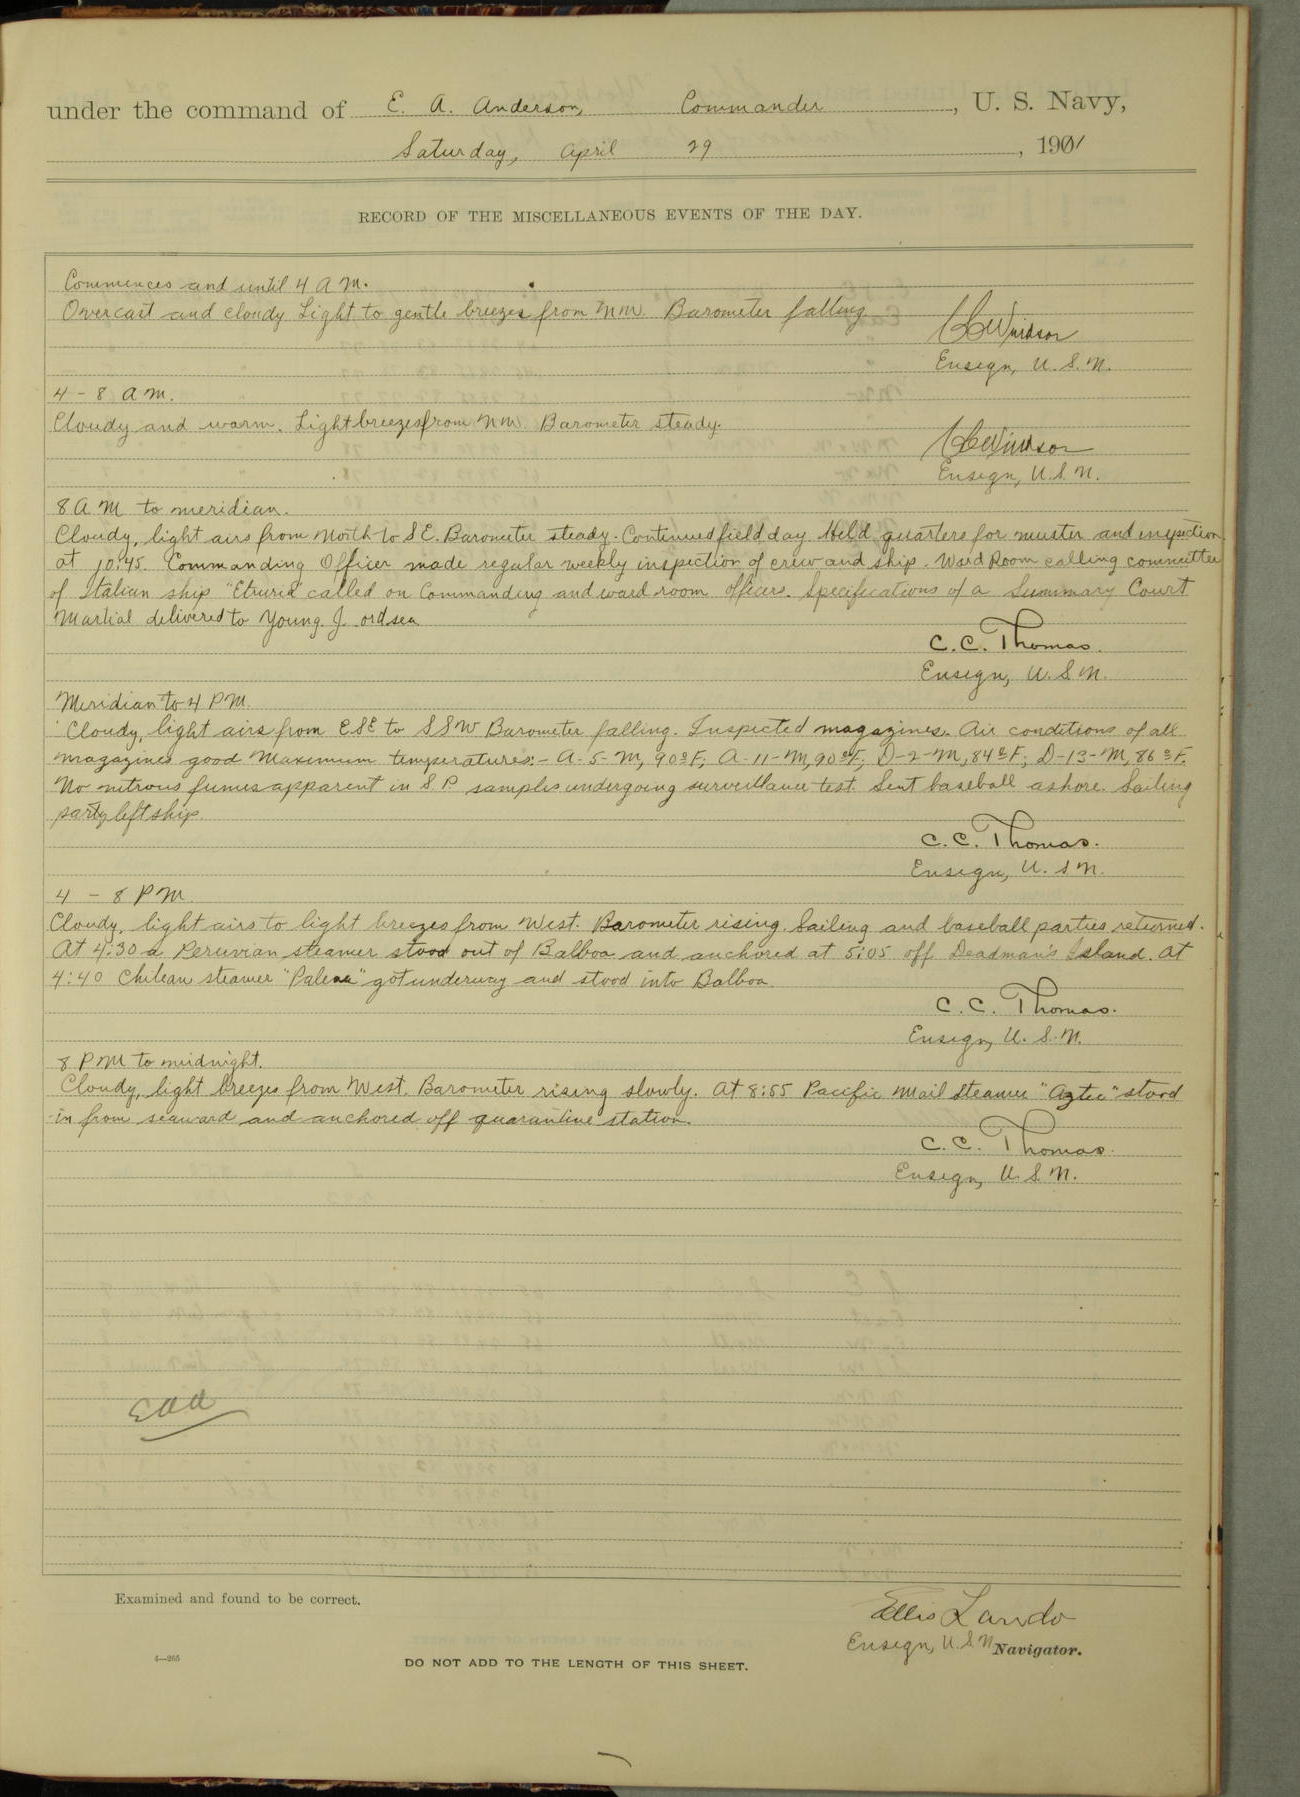 under the command of E. A. Anderson, Commander, U. S. Navy,
Saturday, April 29, 1901
RECORD OF THE MISCELLANEOUS EVENTS OF THE DAY.
Commences and until 4 A M.
Overcast and cloudy Light to gentle breezes from NW. Barometer falling
Windsor
Ensign, U. S. N.
4 - 8 A M.
Cloudy and warm. Light breezes from NW. Barometer steady.
Windsor
Ensign, U. S. N.
8 A M to meridian.
Cloudy, light airs from North to SE. Barometer steady. Continued field day. Held quarters for muster and inspection
at 10:45. Commanding Officer made regular weekly inspection of crew and ship. Ward Room calling committee
of Italian ship "Etruria" called on Commanding and ward room officers. Specifications of a Summary Court
Martial delivered to Young J. ord sea
C. C. Thomas.
Ensign, U. S N.
Meridian to 4 P M.
Cloudy, light airs from ESE to SSW Barometer falling. Inspected magazines. Air conditions of all
magazines good Maximum temperatures:- A-5-M, 90°F; A-11-M, 90°F; D-2-M, 84°F; D-13-M, 86°F.
No nitrous fumes apparent in S. P. samples undergoing surveillance test. Sent baseball ashore. Sailing
party left ship.
C. C. Thomas.
Ensign, U. S N.
4 - 8 P M
Cloudy, light airs to light breezes from West. Barometer rising. Sailing and baseball parties returned.
At 4:30 a Peruvian steamer stood out of Balboa and anchored at 5:05 off Deadman's Island. At
4:40 Chilean steamer "Palena" got underway and stood into Balboa.
C. C. Thomas.
Ensign, U. S. N.
8 P M to midnight.
Cloudy, light breezes from West. Barometer rising slowly. At 8:55 Pacific Mail Steamer "Aztec" stood
in from seaward and anchored off quarantine station.
C. C. Thomas.
Ensign, U. S. N.
EAA
Examined and found to be correct.
Ellis Lando
Ensign, U. S. N. Navigator.
4—265
DO NOT ADD TO THE LENGTH OF THIS SHEET.